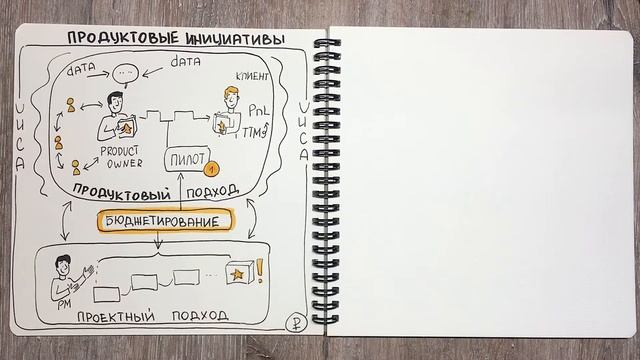 ПРОДУКТОВЫЕ ИНИЦИАТИВЫ
DATA
DATA
КЛИЕНТ
PnL
PRODUCT
OWNER
ПИЛОТ
1
ПРОДУКТОВЫЙ ПОДХОД
VUCA
VUCA
БЮДЖЕТИРОВАНИЕ
PM
!
ПРОЕКТНЫЙ ПОДХОД